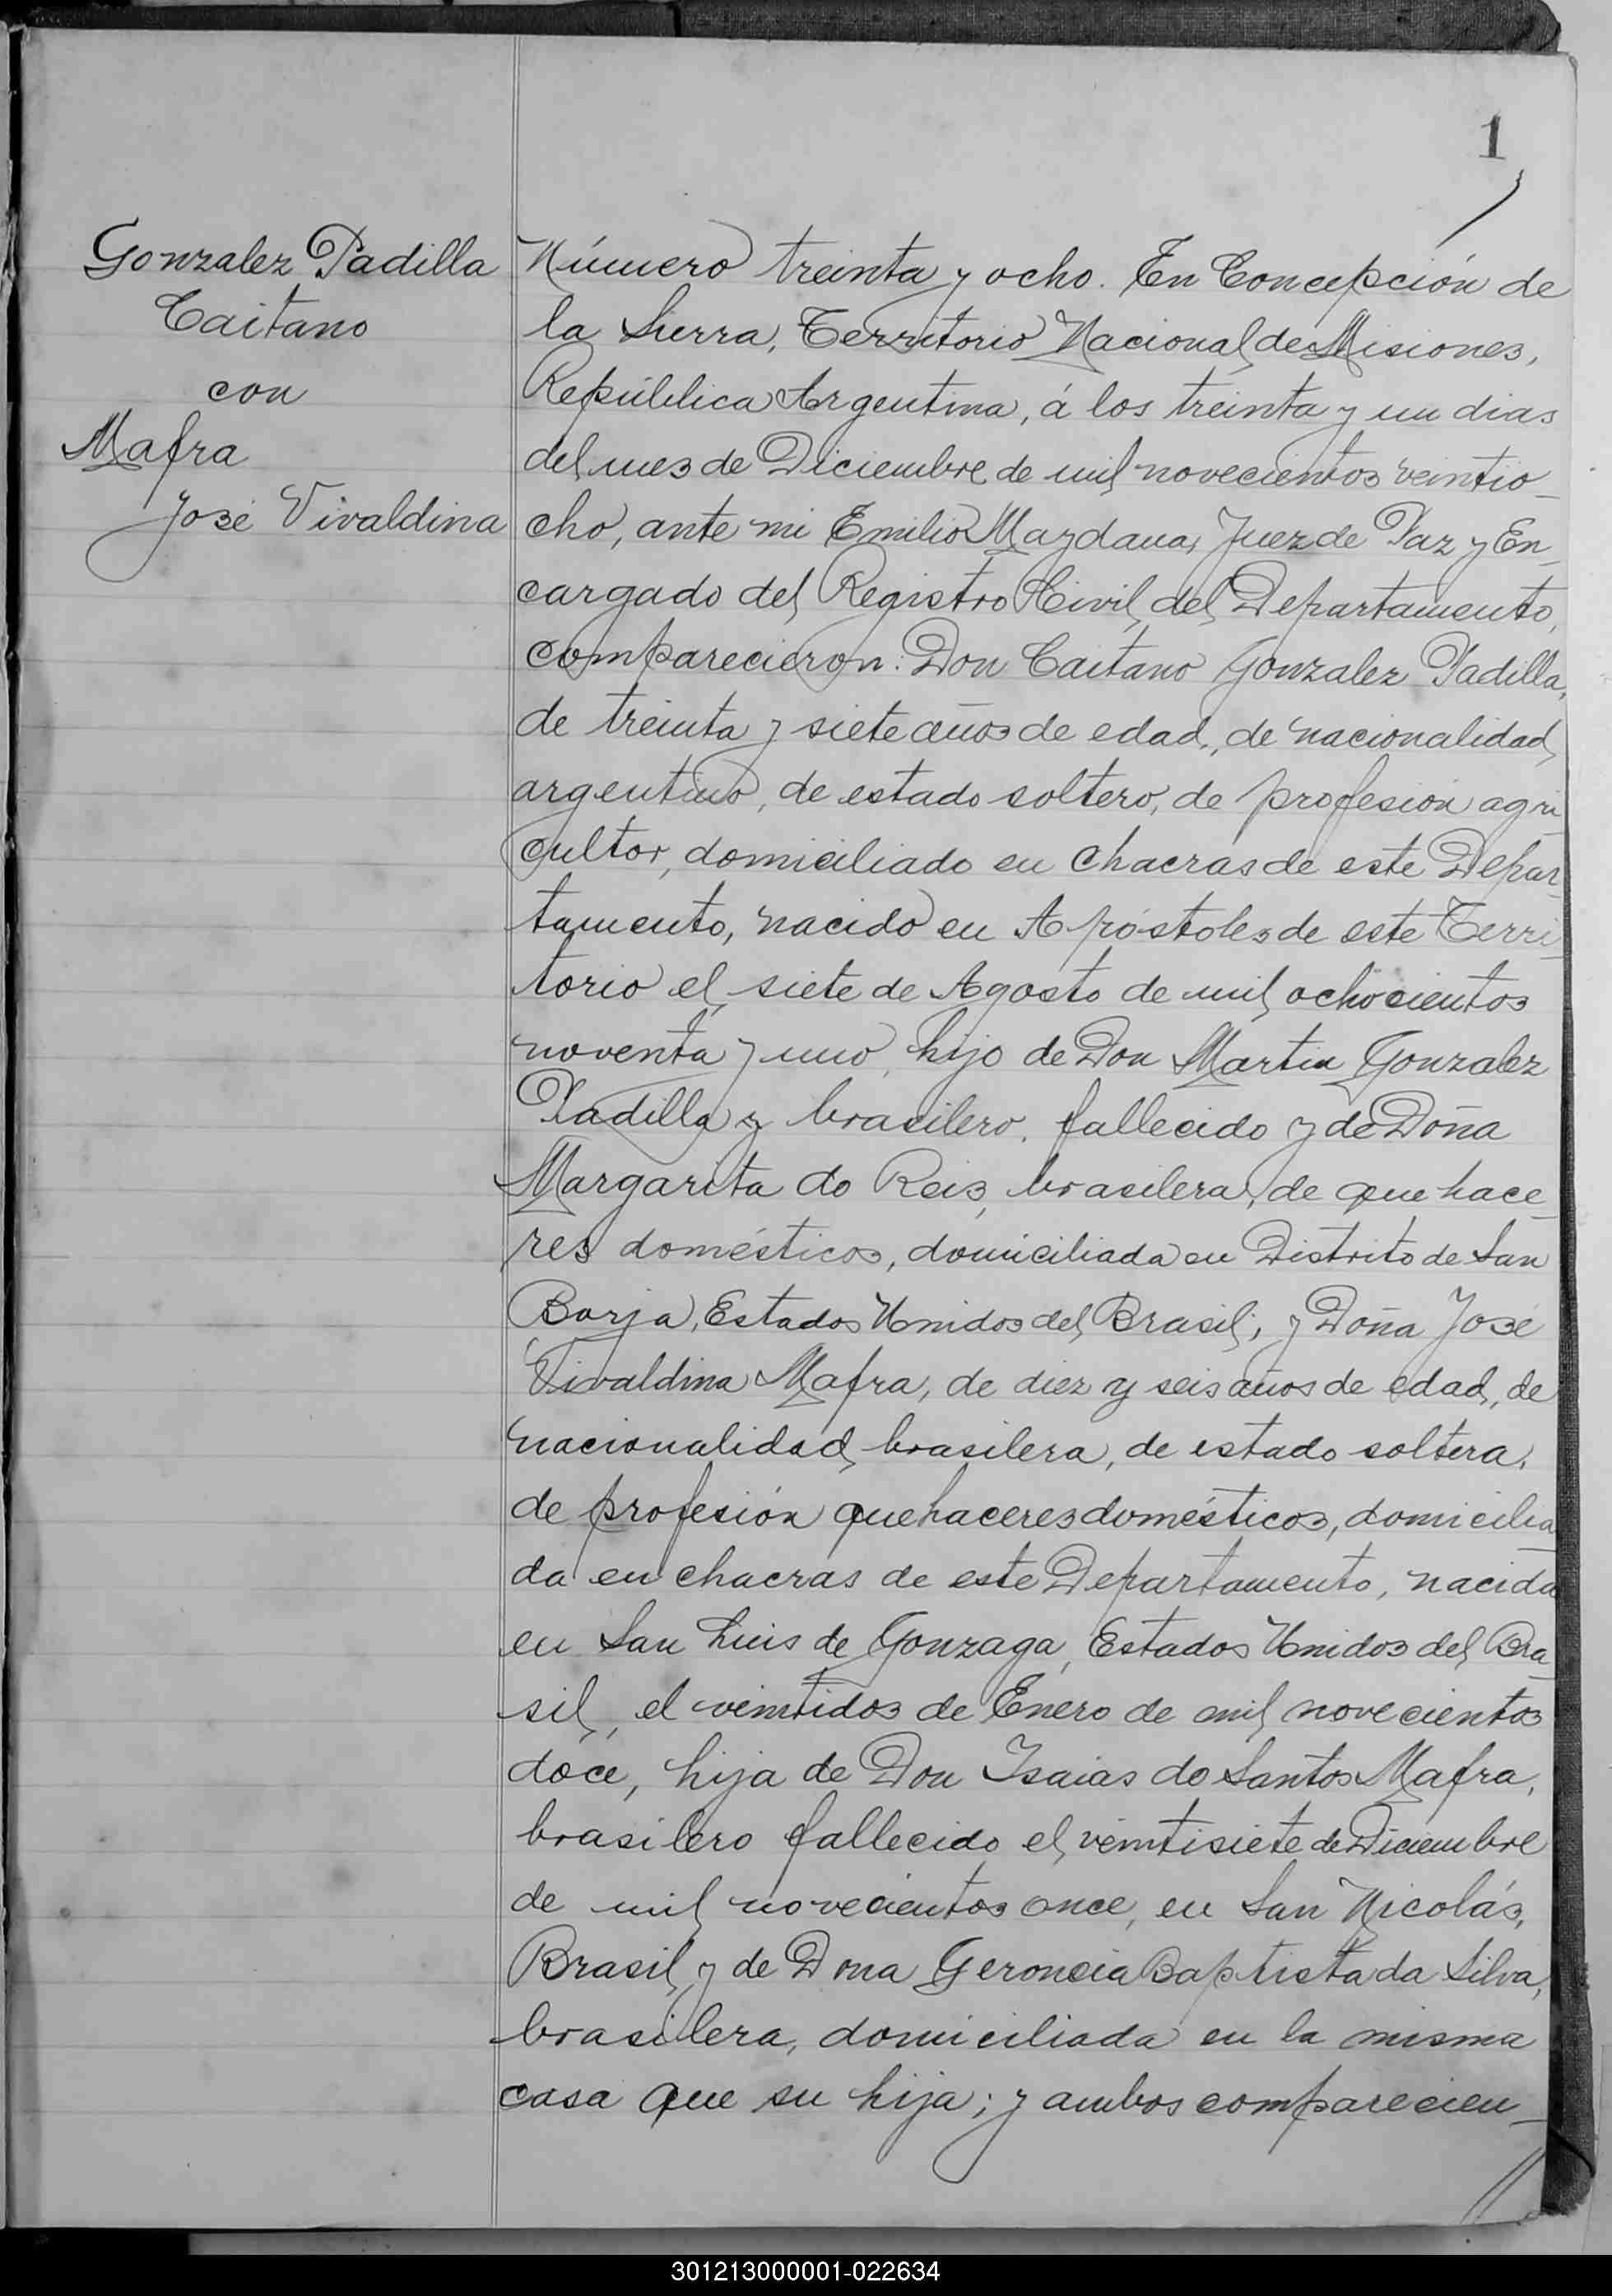 1
Gonzalez Padilla
Caitano
con
Mafra
José Vivaldina
Número treinta y ocho. En Concepción de
la Sierra, Territorio Nacional de Misiones,
República Argentina, á los treinta y un dias
del mes de Diciembre de mil novecientos veintio_
cho, ante mi Emilio Maydana, Juez de Paz y En_
cargado del Registro Civil del Departamento,
comparecieron: Don Caitano Gonzalez Padilla,
de treinta y siete años de edad, de nacionalidad
argentino, de estado soltero, de profesión agri_
cultor, domiciliado en chacras de este Depar_
tamento, nacido en Apóstoles de este Terri_
torio el siete de Agosto de mil ochocientos
noventa y uno, hijo de Don Martin Gonzalez
Padilla y brasilero, fallecido y de Doña
Margarita do Reis, brasilera, de que hace_
res domésticos, domiciliada en Distrito de San
Borja, Estados Unidos del Brasil; y Doña José
Vivaldina Mafra, de diez y seis años de edad, de
nacionalidad brasilera, de estado soltera,
de profesión quehaceres domésticos, domicilia_
da en chacras de este Departamento, nacida
en San Luis de Gonzaga, Estados Unidos del Bra_
sil, el veintidos de Enero de mil novecientos
doce, hija de Don Isaias do Santos Mafra,
brasilero fallecido el veintisiete de Diciembre
de mil novecientos once, en San Nicolás,
Brasil y de Dona Geroncia Baptista da Silva,
brasilera, domiciliada en la misma
casa que su hija; y ambos comparecien_
301213000001-022634